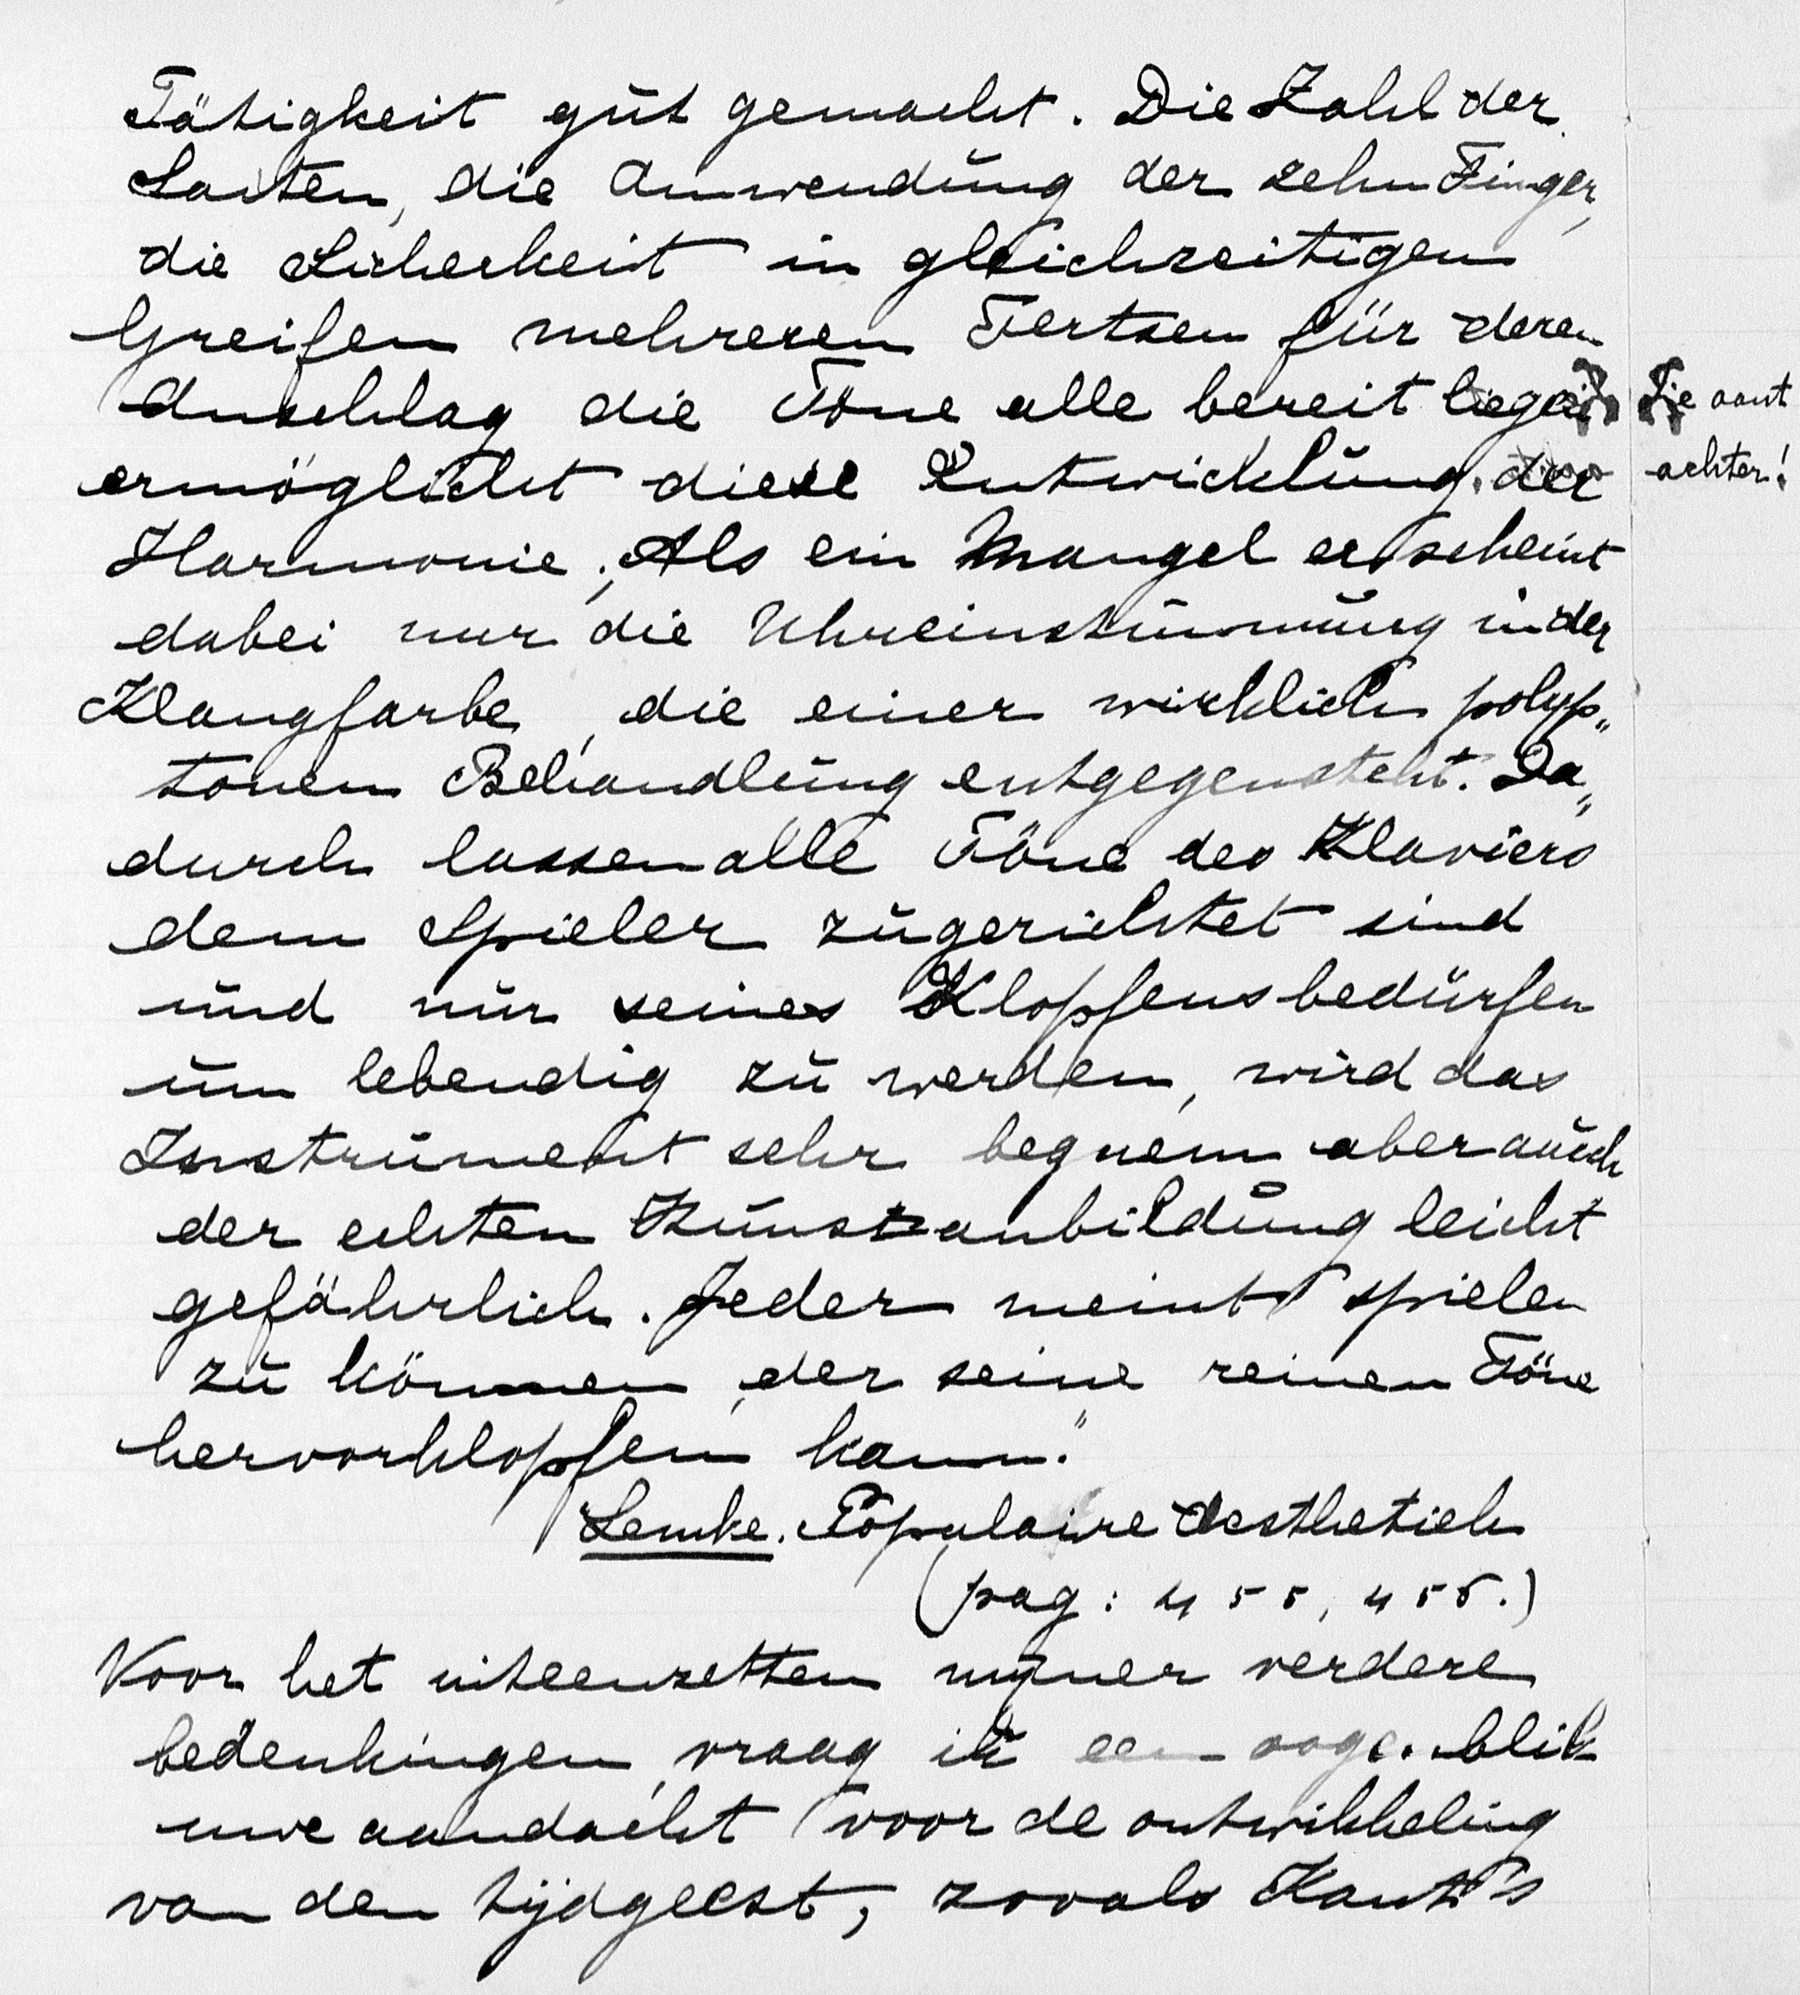 Tätigkeit gut gemacht. Die Zahl der
Saiten, die Anwendung der zehn Finger,
die Sicherkeit in gleichzeitigen
Greifen mehreren Tertsen für deren
Anschlag die Töne alle bereit liegen
Zie aant
ermöglicht diese Entwicklung der
achter!
Harmonie; Als ein Mangel erscheint
dabei nur die Uhreinstimmung in der
Klangfarbe, die einer wirklich polyp„
tonen Behandlung entgegensteht. Da„
durch lassen alle Töne des Klaviers
dem Spieler zugerichtet sind
und nur seines Klopfens bedürfen
um lebendig zu werden, wird das
Instrument sehr bequem aber auch
der echten Kunstanbildung leicht
gefährlich. Jeder meint spielen
zu können, der seine reinen Töne
hervorklopfen kann."
Lemke. Populaire Aesthetich
(pag: 455, 456.)
Voor het uiteenzetten mijner verdere
bedenkingen, vraag ik een oogenblik
uwe aandacht voor de ontwikkeling
van den tijdgeest, zooals Kant's